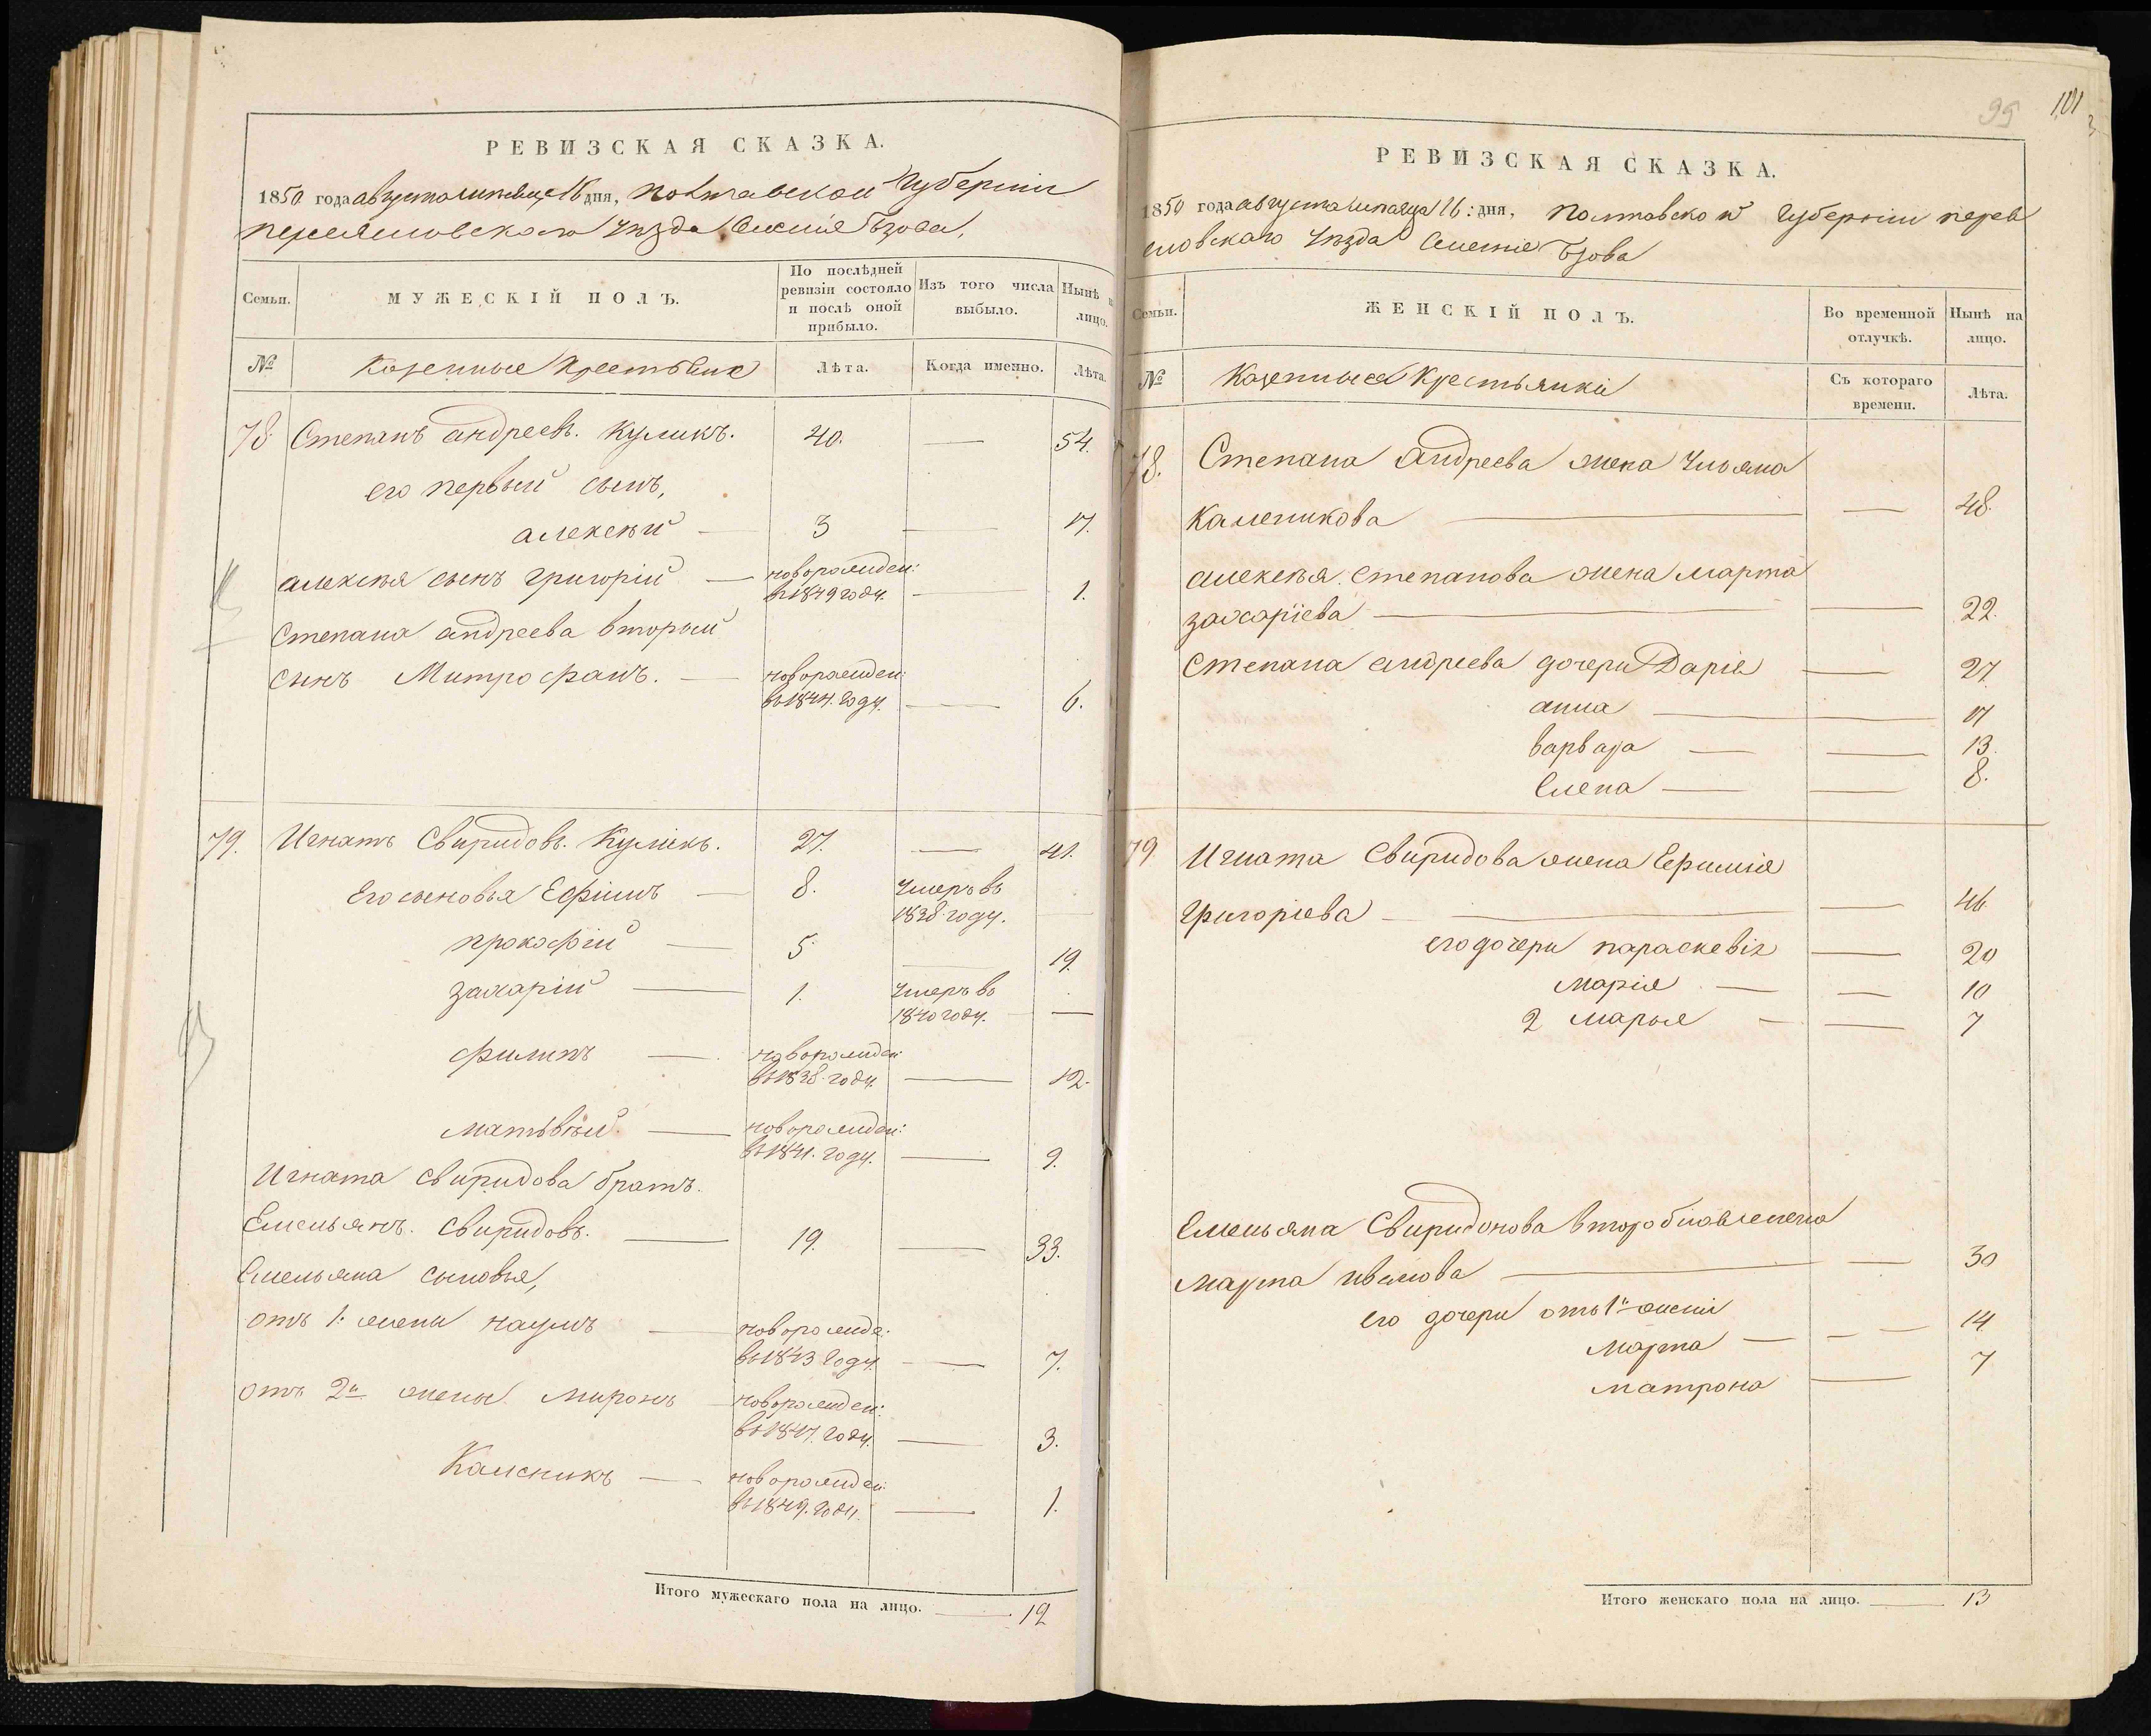 РЕВИЗСКАЯ СКАЗКА.
1850 года августа месяца 16 дня, Полтавской Губернии
переяславскаго Уезда Селенія Бзова,
Семьи.
МУЖЕСКІЙ ПОЛЪ.
По послѣдней ревизіи состояло и послѣ оной прибыло.
Изъ того числа выбыло.
Нынѣ лицо.
№
Казенные Крестьяне
Лѣта.
Когда именно.
Лѣта.
78. Степанъ андреевъ. Куликъ. 40. — 54.
его первый сынъ,
алексѣй — 3 — 17.
алексѣя сынъ григорій — новорожден:
въ 1849 году. — 1.
Степана андреева вторый
сынъ Митрофанъ. — новорожден:
въ 1844. году. — 6.
79. Игнатъ Свиридовъ. Куликъ. 27. — 41.
Его сыновья Ефимъ — 8. умеръ въ
1838 году. —
прокофій — 5 — 19.
захарій — 1. умеръ въ
1840 году. —
филипъ — новорожден:
въ 1838 году. — 12.
матьвѣй. — новорожден:
въ 1841. году. — 9.
Игната свиридова братъ.
Емельянъ. Свиридовъ. — 19. — 33.
Емельяна сыновья,
отъ 1: жены наумъ — новорожде:
въ 1843 году. — 7.
отъ 2й жены миронъ — новорожден:
въ 1847. году. — 3.
Каленикъ — новорожден:
въ 1849. году. — 1.
Итого мужескаго пола на лицо. — 12
95 101
РЕВИЗСКАЯ СКАЗКА.
1850 года августа месяца 16: дня, Полтавской Губерніи перея
словскаго Уѣзда Селенія Бзова
Семьи.
ЖЕНСКІЙ ПОЛЪ.
Во временной отлучкѣ.
Нынѣ на лицо.
№
Казенные Крестьянки
Съ котораго времени.
Лѣта.
78. Степана Андреева жена Ульяна
Каленикова — — 48.
алексѣя. степанова жена марта
захаріева — — 22.
Степана андреева дочери Дарія — 27
анна — — 17
варвара — — 13.
Елена — — 8.
79 Игната Свиридова жена Ефимія
григоріева — — 46
его дочери параскевія — 20
марія — — 10
2 марья — — 7
Емельяна Свиридонова жена
марта — — 30
его дочери отъ 1й жены
марта — — 14
матрона — 7
Итого женскаго пола на лицо. — 13